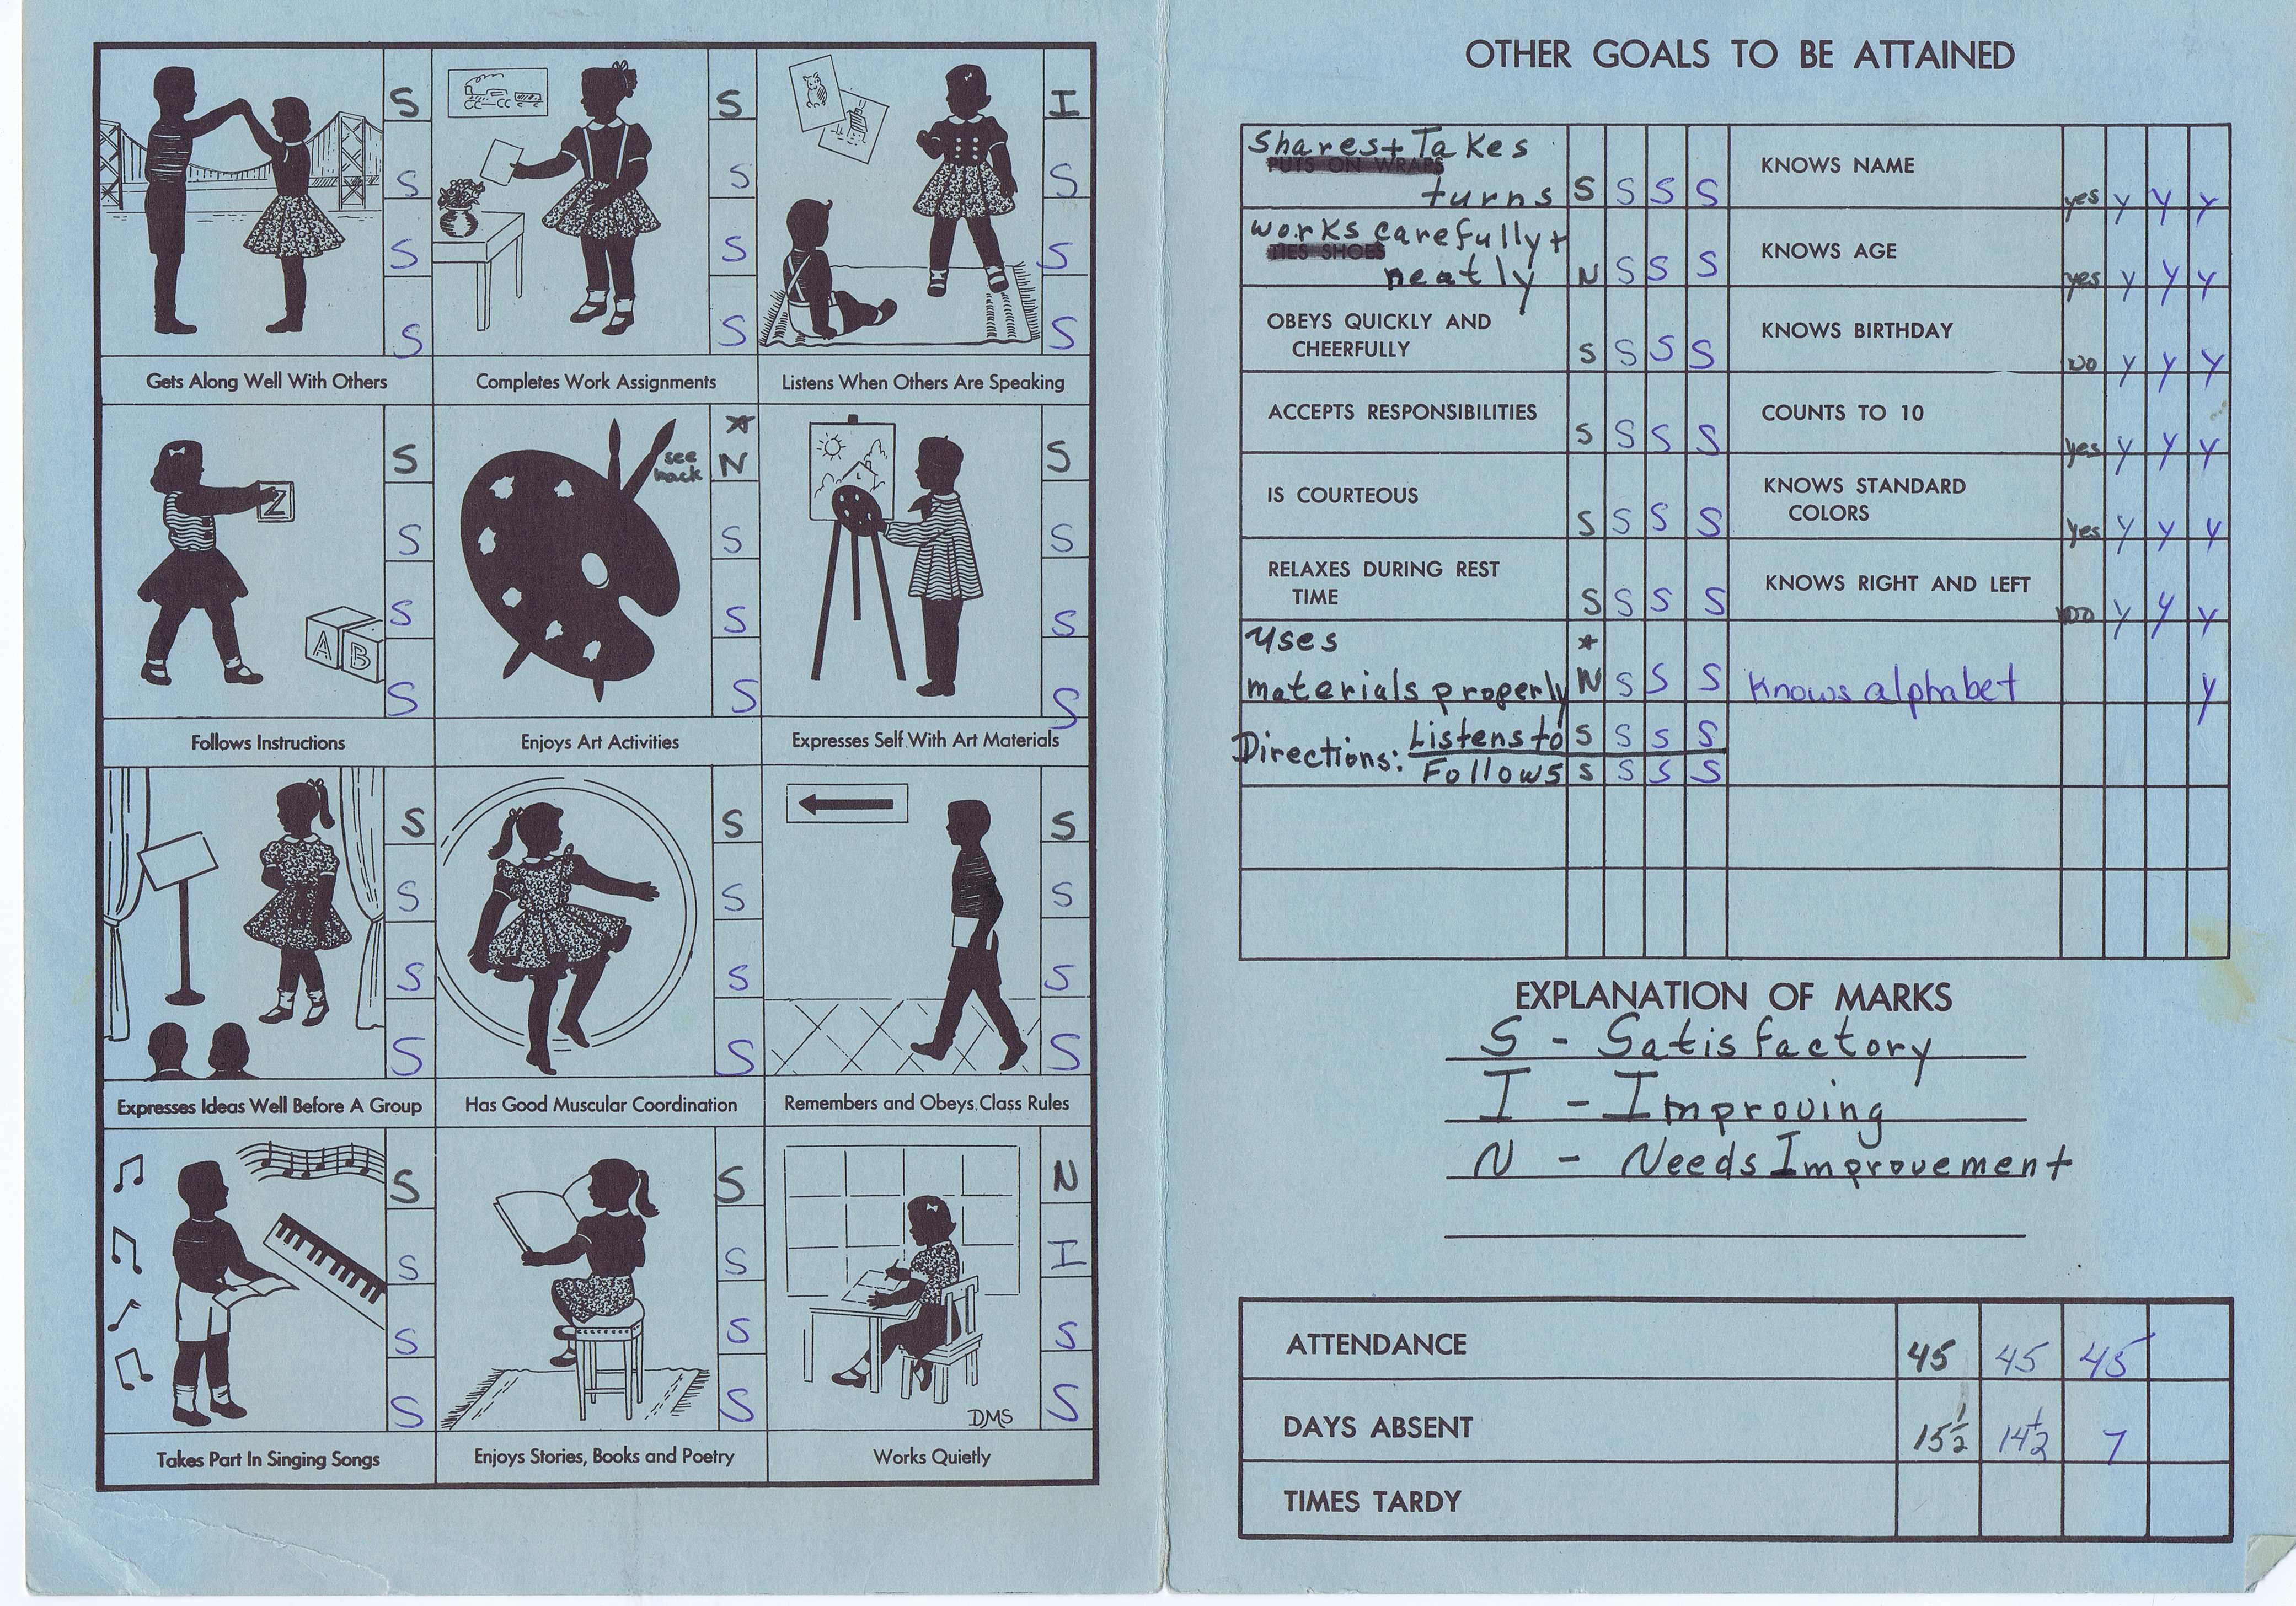 S S I
S S S
S S S
S S S
Gets Along Well With Others Completes Work Assignments Listens When Others Are Speaking
S * N see back S
Z
S S S
S S S
A B
S S S
Follows Instructions Enjoys Art Activities Expresses Self With Art Materials
S S S
S S S
S S S
S S S
Expresses Ideas Well Before A Group Has Good Muscular Coordination Remembers and Obeys Class Rules
S S N
S S I
S S S
S S S
DMS
Takes Part In Singing Songs Enjoys Stories, Books and Poetry Works Quietly
OTHER GOALS TO BE ATTAINED
Shares + Takes
PUTS ON WRAPS
turns S S S S
KNOWS NAME yes y y y
Works carefully +
TIES SHOES
neatly N S S S
KNOWS AGE yes y y y
OBEYS QUICKLY AND
CHEERFULLY S S S S
KNOWS BIRTHDAY no y y y
ACCEPTS RESPONSIBILITIES S S S S
COUNTS TO 10 yes y y y
IS COURTEOUS S S S S
KNOWS STANDARD
COLORS yes y y y
RELAXES DURING REST
TIME S S S S
KNOWS RIGHT AND LEFT no y y y
Uses *
materials properly N S S S
Knows alphabet y
Directions: Listens to S S S S
Follows S S S S
EXPLANATION OF MARKS
S - Satisfactory
I - Improving
N - Needs Improvement
ATTENDANCE 45 45 45
DAYS ABSENT 15½ 14½ 7
TIMES TARDY